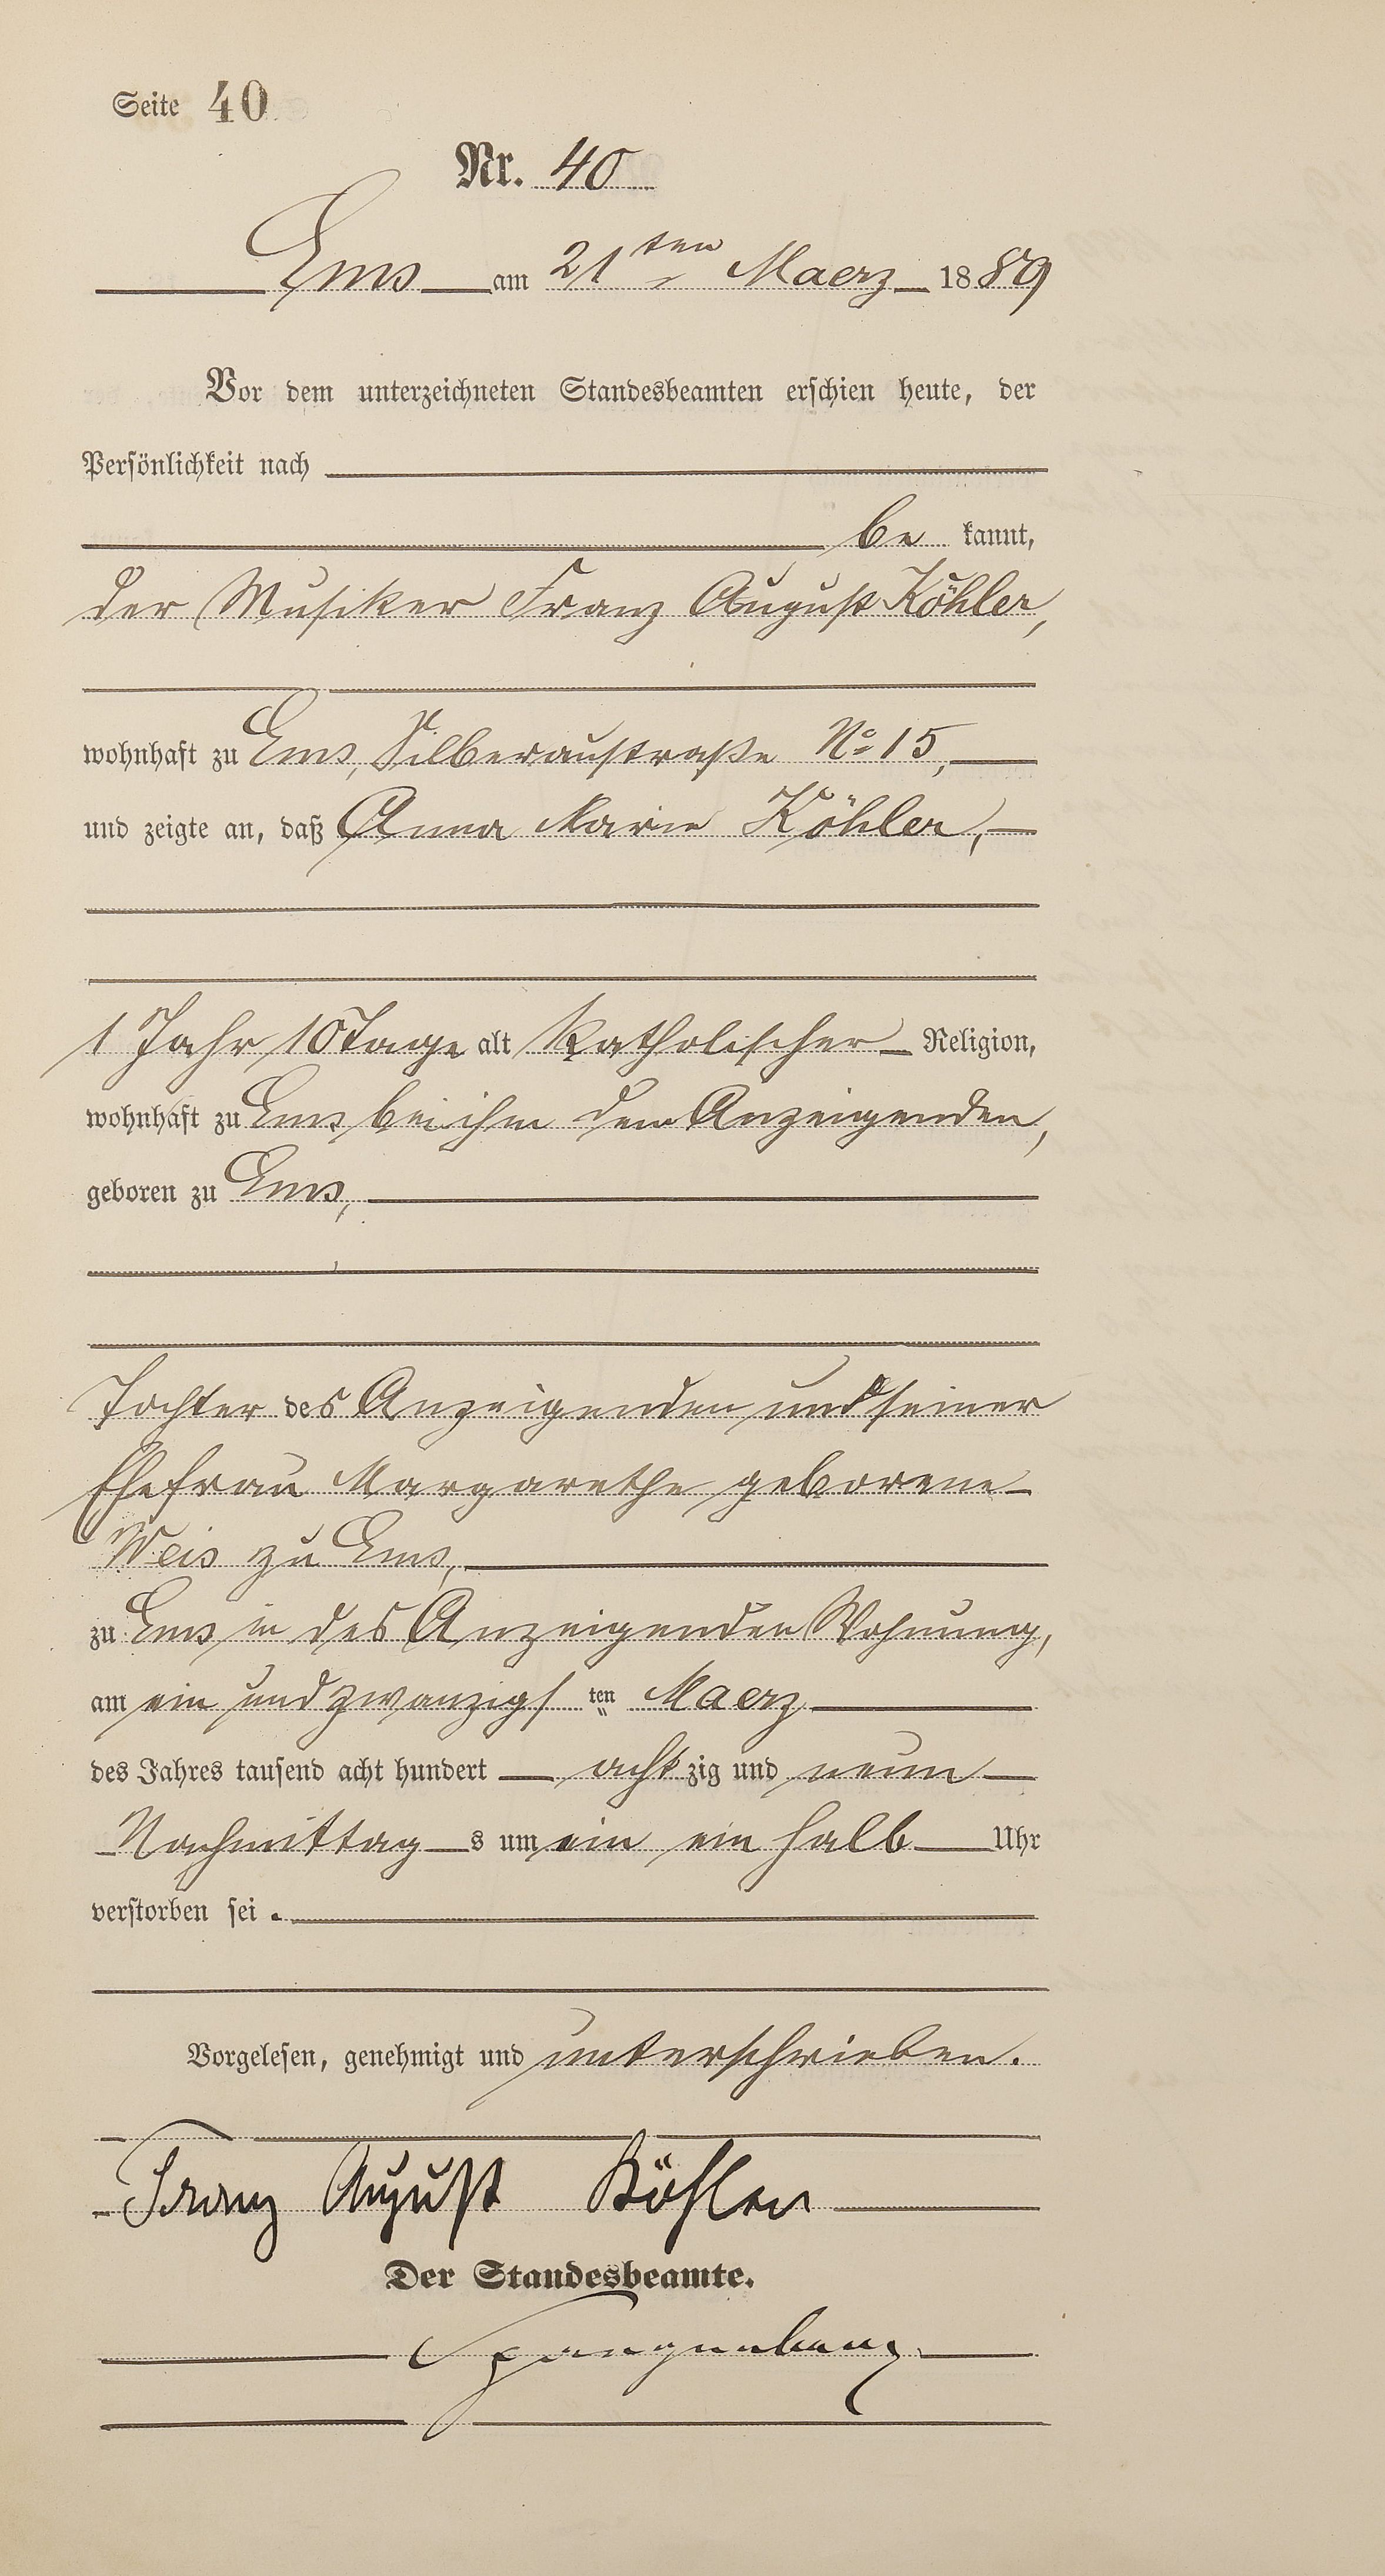 Seite 40
Nr. 40
Ems am 21ten Maerz 1889
Vor dem unterzeichneten Standesbeamten erschien heute, der
Persönlichkeit nach
be kannt,
der Musiker Franz August Köhler,
wohnhaft zu Ems, Silberaustraße No 15,
und zeigte an, daß Anna Marie Köhler,
1 Jahr 10 Tage alt Katholischer Religion,
wohnhaft zu Ems bei ihm dem Anzeigenden,
geboren zu Ems,
Tochter des Anzeigenden und seiner
Ehefrau Margarethe geborene
Weis zu Ems,
zu Ems in des Anzeigenden Wohnung,
am ein und zwanzigsten Maerz
des Jahres tausend acht hundert acht zig und neun
Nachmittag s um ein ein halb Uhr
verstorben sei.
Vorgelesen, genehmigt und unterschrieben.
Franz August Köhler
Der Standesbeamte.
Spangenberg